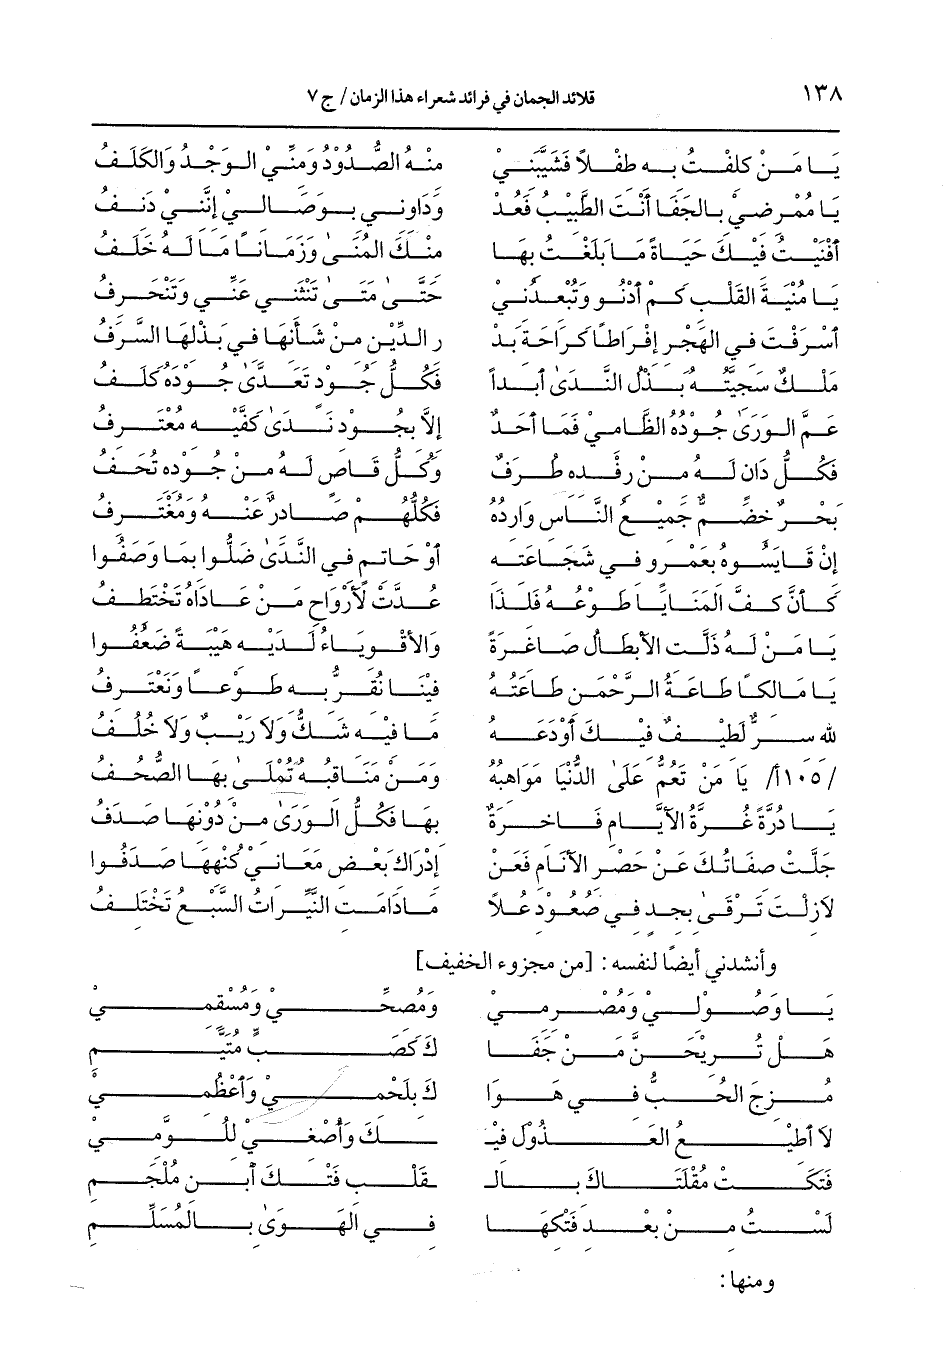 ١٣٨ قلائد الجمان في فرائد شعراء هذا الزمان/ ج٧
يَا مَنْ كَلِفْتُ بِهِ طفْلاً فَشَيَّبَنِي مِنْهُ الصُّدُودُ وَمَنِّي الوَجْدُ وَالكَلَفُ
يَا مُمْرِضِيْ بِالجَفَا أَنْتَ الطَّبِيْبُ فَعُدْ وَدَاوِنِي بِوِصَالِي إِنَّنِي دَنِفُ
أَفْنَيْتُ فِيْكَ حَيَاةً مَا بَلَغْتُ بِهَا مِنْكَ المُنَى وَزَمَاناً مَا لَهُ خَلَفُ
يَا مُنْيَةَ القَلْبِ كَمْ أَدْنُو وَتُبْعِدُنِي حَتَّى مَتَى تَنْثَنِي عَنِّي وَتَنْحَرِفُ
أَسْرَفْتَ فِي الهَجْرِ إِفْرَاطاً كَرَاحَةِ بَدْ رِ الدِّيْنِ مِنْ شَأْنِهَا فِي بَذْلِهَا السَّرَفُ
مَلْكٌ سَجِيَّتُهُ بَذْلُ النَّدَى أَبَداً فَكُلُّ جُودٍ تَعَدَّى جُودَهُ كَلَفُ
عَمَّ الوَرَىٰ جُوْدُهُ الطَّامِي فَمَا أَحَدٌ إِلاَّ بِجُوْدِ نَدَىٰ كَفَّيْهِ مُعْتَرِفُ
فَكُلُّ دَانٍ لَهُ مِنْ رِفْدِهِ طُرَفٌ وَكُلُّ قَاصٍ لَهُ مِنْ جُودِهِ تُحَفُ
بَحْرٌ خِضَمٌّ جَمِيْعُ النَّاسِ وَارِدُهُ فَكُلُّهُمْ صَادِرٌ عَنْهُ وَمُغْتَرِفُ
إِنْ قَايَسُوهُ بِعَمْرٍو فِي شَجَاعَتِهِ أَوْ حَاتِمٍ فِي النَّدَىٰ ضَلُّوا بِمَا وَصَفُوا
كَأَنَّ كَفَّ المَنَايَا طَوْعُهُ فَلِذَا عُدَّتْ لأَرْوَاحِ مَنْ عَادَاهُ تَخْتَطِفُ
يَا مَنْ لَهُ ذَلَّتِ الأَبْطَالُ صَاغِرَةً وَالأَقْوِيَاءُ لَدَيْهِ هَيْبَةً ضَعُفُوا
يَا مَالِكاً طَاعَةُ الرَّحْمٰنِ طَاعَتُهُ فِيْنَا نُقِرُّ بِهِ طَوْعاً وَنَعْتَرِفُ
لله سِرٌّ لَطِيْفٌ فِيْكَ أَوْدَعَهُ مَا فِيْهِ شَكٌّ وَلاَ رَيْبٌ وَلاَ خُلُفُ
/١٠٥أ/ يَا مَنْ تَعُمُّ عَلَى الدُّنْيَا مَوَاهِبُهُ وَمَنْ مَنَاقِبُهُ تُمْلَى بِهَا الصُّحُفُ
يَا دُرَّةً غُرَّةُ الأَيَّامِ فَاخِرَةٌ بِهَا فَكُلُّ الوَرَىٰ مِنْ دُونِهَا صَدَفُ
جَلَّتْ صِفَاتُكَ عَنْ حَصْرِ الأَنَامِ فَعَنْ إِدْرَاكِ بَعْضِ مَعَانِي كُنْهِهَا صَدَفُوا
لاَزِلْتَ تَرْقَىٰ بِجِدٍ فِي صُعُودِ عُلاً مَادَامَتِ النَّيِّرَاتُ السَّبْعُ تَخْتَلِفُ
وأنشدني أيضاً لنفسه: [من مجزوء الخفيف]
يَا وَصُوْلِيْ وَمُصْرِمِيْ وَمُصِحِّيْ وَمُسْقِمِيْ
هَلْ تُرِيْحَنَّ مِنْ جَفَا كَ كَصَبٍّ مُتَيَّمِ
مُزِجَ الحُبُّ فِي هَوَا كَ بِلَحْمِيْ وَأَعْظُمِيْ
لاَ أُطِيْعُ العَذُولَ فِيْـ ـكَ وَأُصْغِيْ لِلُوَّمِيْ
فَتَكَتْ مُقْلَتَاكَ بِالْـ ـقَلْبِ فَتْكَ أبْنِ مُلْجَمِ
لَسْتُ مِنْ بَعْدِ فَتْكِهَا فِي الهَوَىٰ بِالمُسَلَّمِ
ومنها: